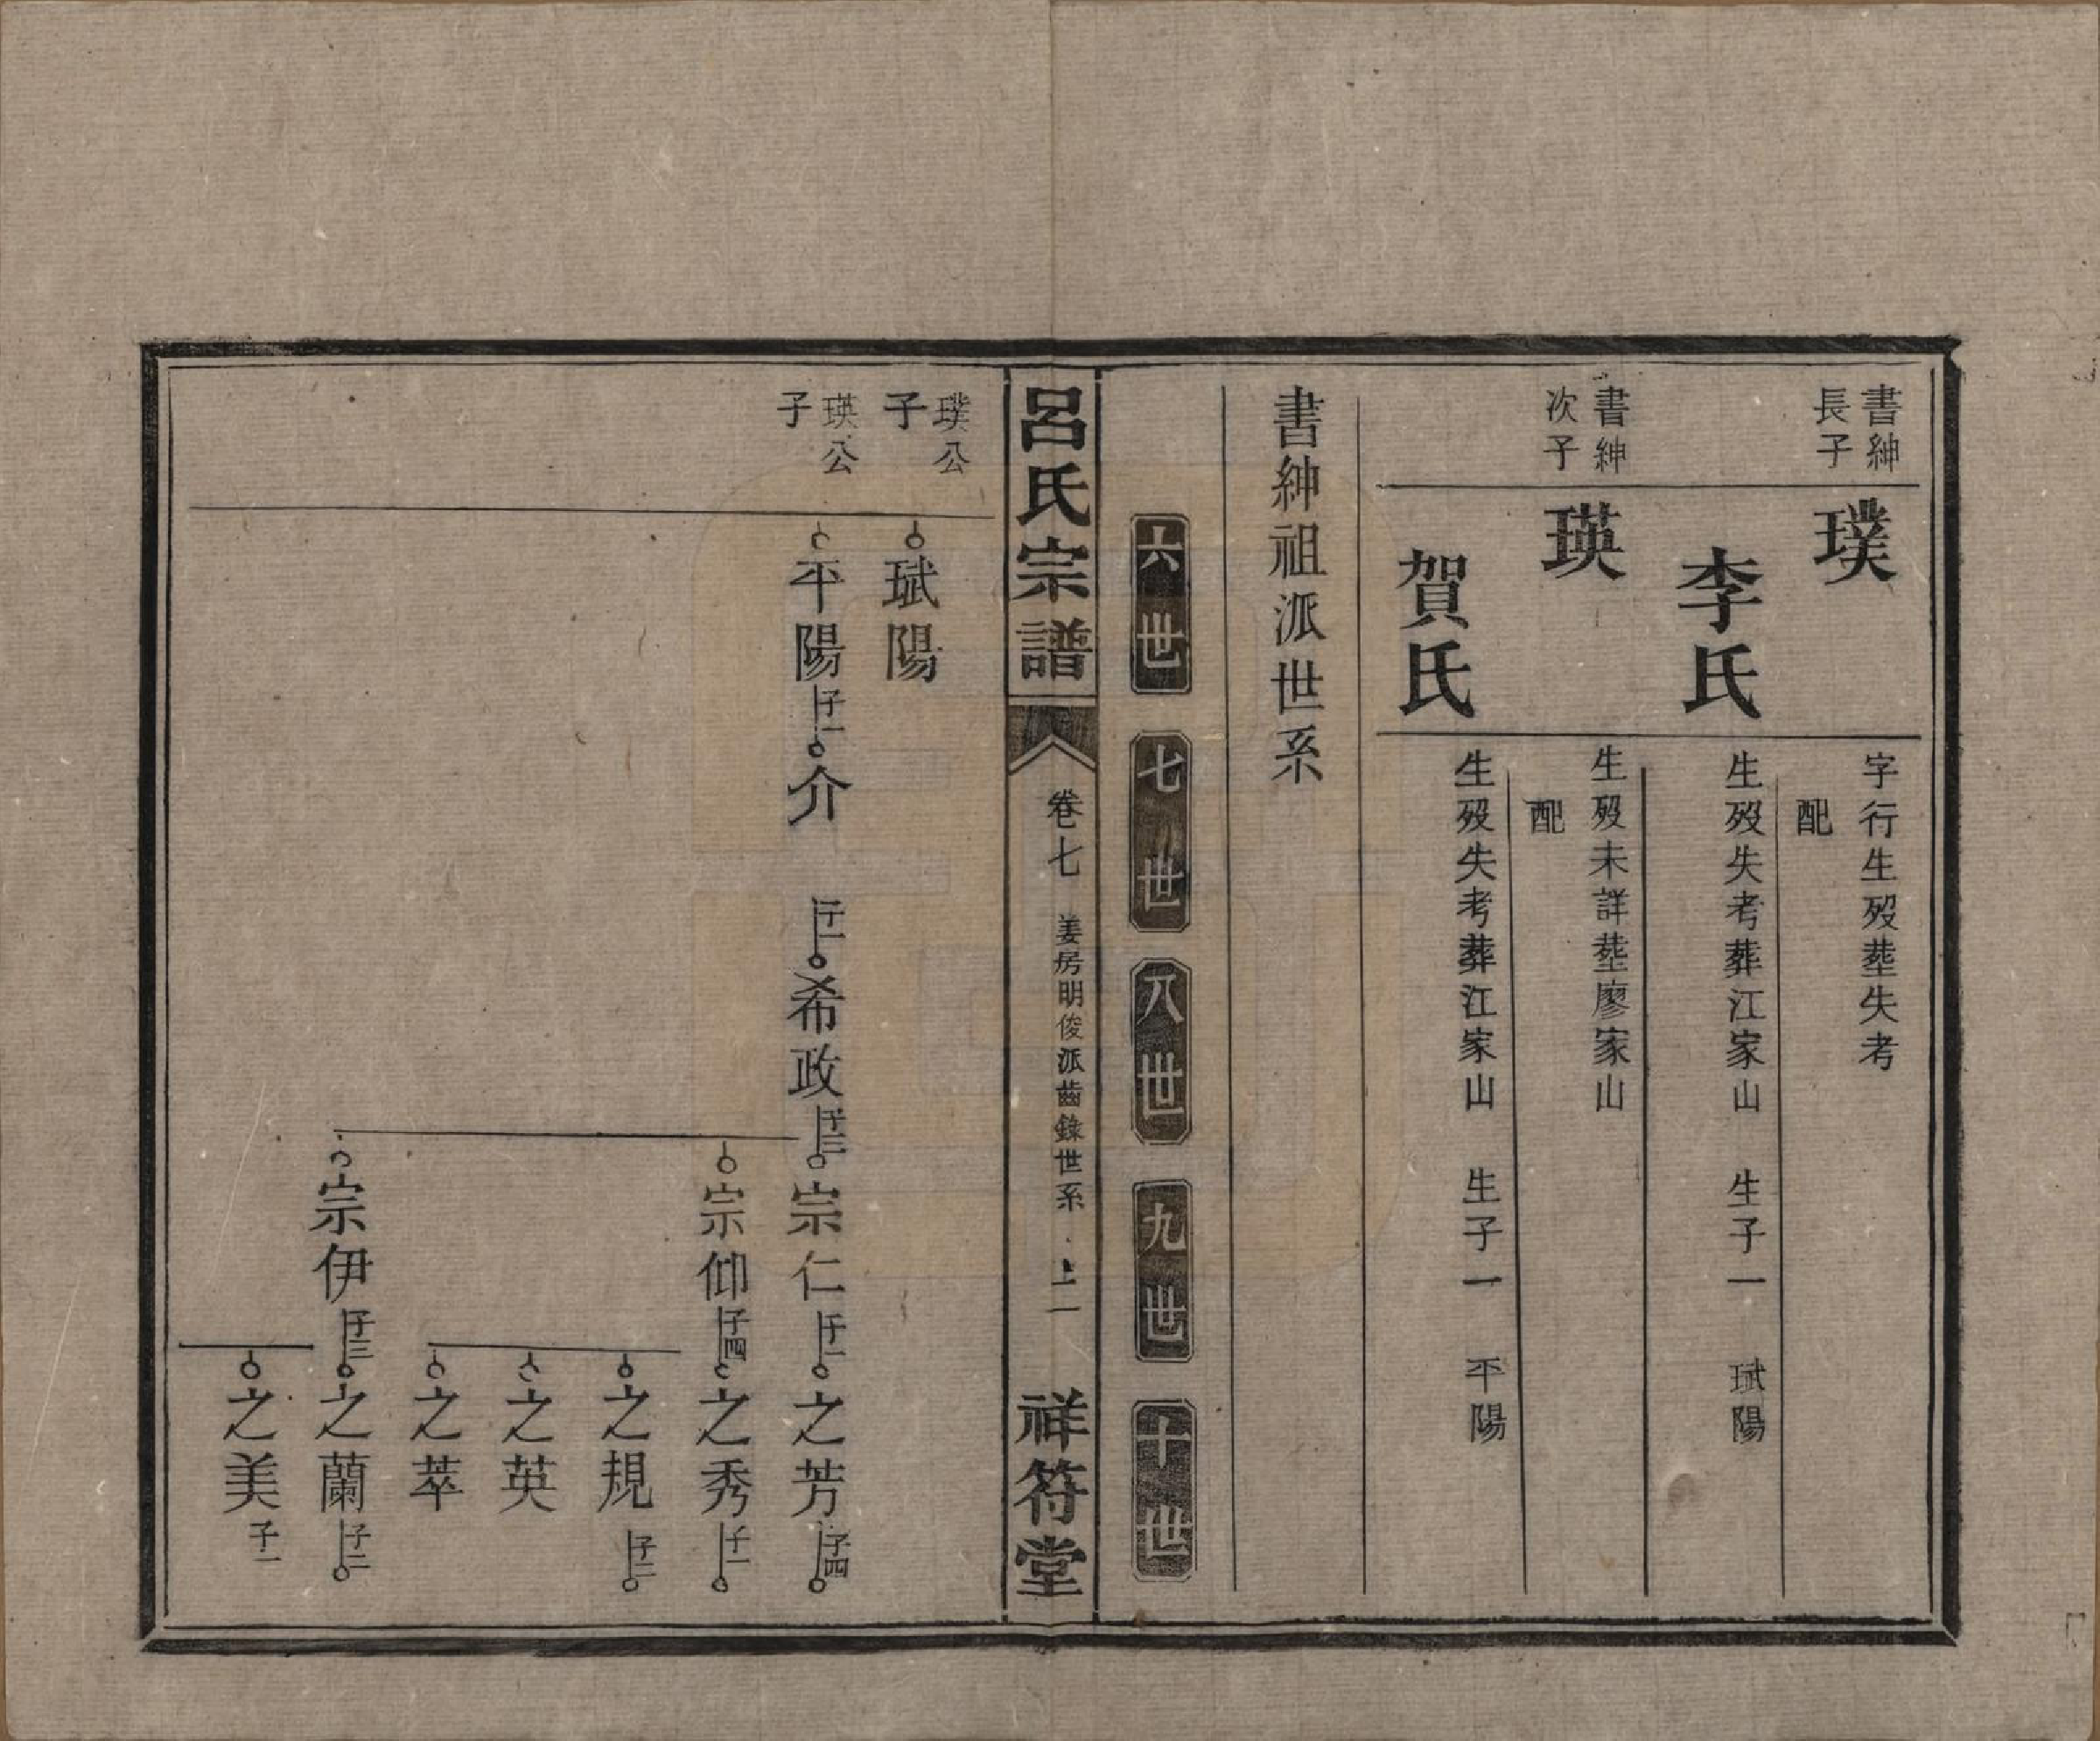 書紳
長子
璞
字行生歿葬失考
配
李氏
生歿失考葬江家山　生子一　珷陽
書紳
次子
瑛
生歿未詳葬廖家山
配
賀氏
生歿失考葬江家山　生子一　平陽
書紳祖派世系
六世　七世　八世　九世　十世
呂氏宗譜
卷七　姜房明俊派齒錄世系
祥符堂
璞公
子
珷陽
瑛公
子
平陽子一介　子一希政子三宗仁子一之芳子四
宗仰子四之秀子一
之規子二
之英
之萃
宗伊子三之蘭子二
之美子一